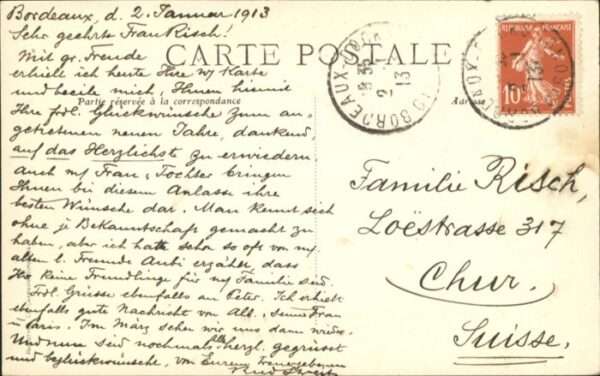 Bordeaux, d. 2. Januar 1913
Sehr geehrte Frau Risch!
CARTE POSTALE
Mit gr. Freude
erhielt ich heute Ihre w/ Karte
und beeile mich, Ihnen hiemit
Partie réservée à la correspondance
Adresse
Ihre frdl. Glückwünsche zum an-
getretenen neuen Jahre, dankend,
auf das Herzlichste zu erwiedern
auch m/ Frau & Tochter bringen
Ihnen bei diesem Anlasse ihre
besten Wünsche dar. Man kennt sich
ohne je Bekanntschaft gemacht zu
haben, aber ich hatte schon so oft von m/
alten l. Freunde erzählen, dass
Sie keine Fremdlinge für m/ Familie sind.
Frdl. Grüsse ebenfalls an Peter. Ich erhielt
ebenfalls gute Nachricht von Alb. & seiner Frau
in Paris. Im März sehen wir uns dann wieder.
Und nun seid nochmals herzl. gegrüsst
und beglückwünscht, von Eurem
BORDEAUX
2 - 1
13
10
Familie Risch,
Loëstrasse 317
Chur.
Suisse.